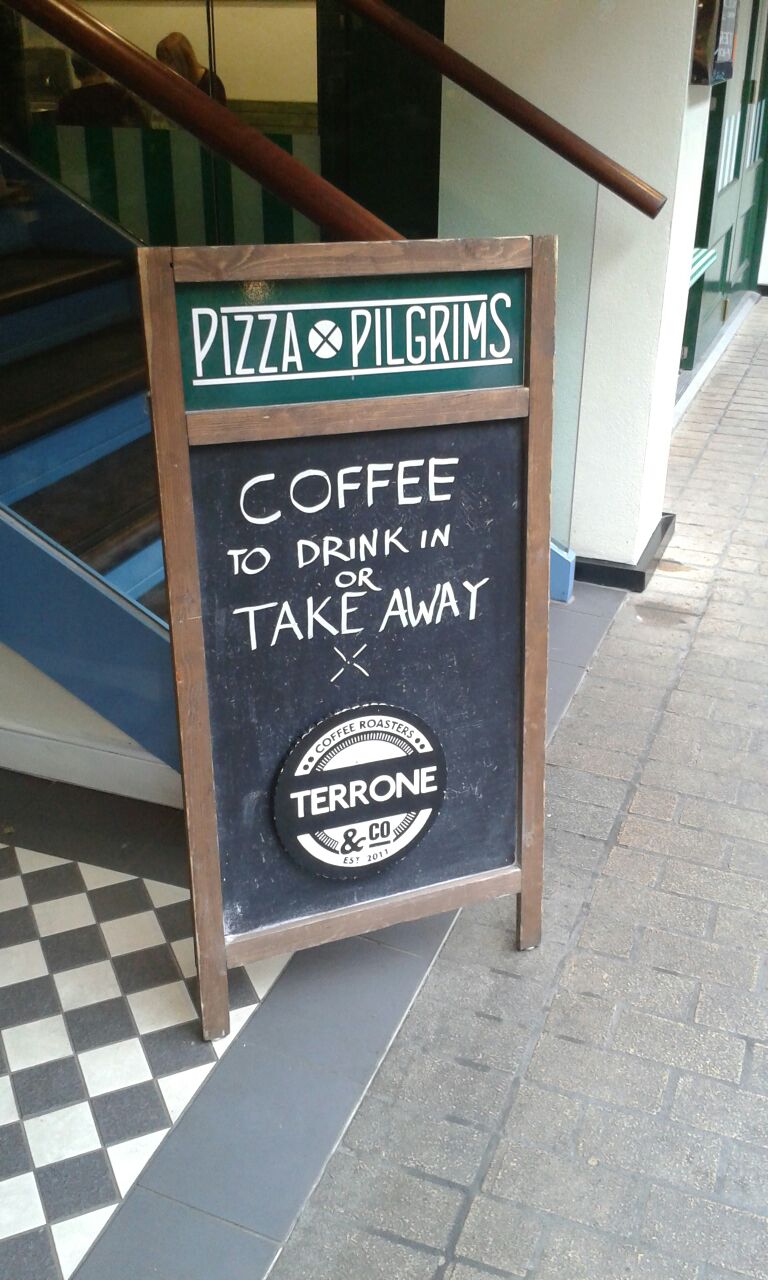 PIZZA PILGRIMS
COFFEE
TO DRINK IN
OR
TAKE AWAY
COFFEE ROASTERS
TERRONE
& CO
EST 2011